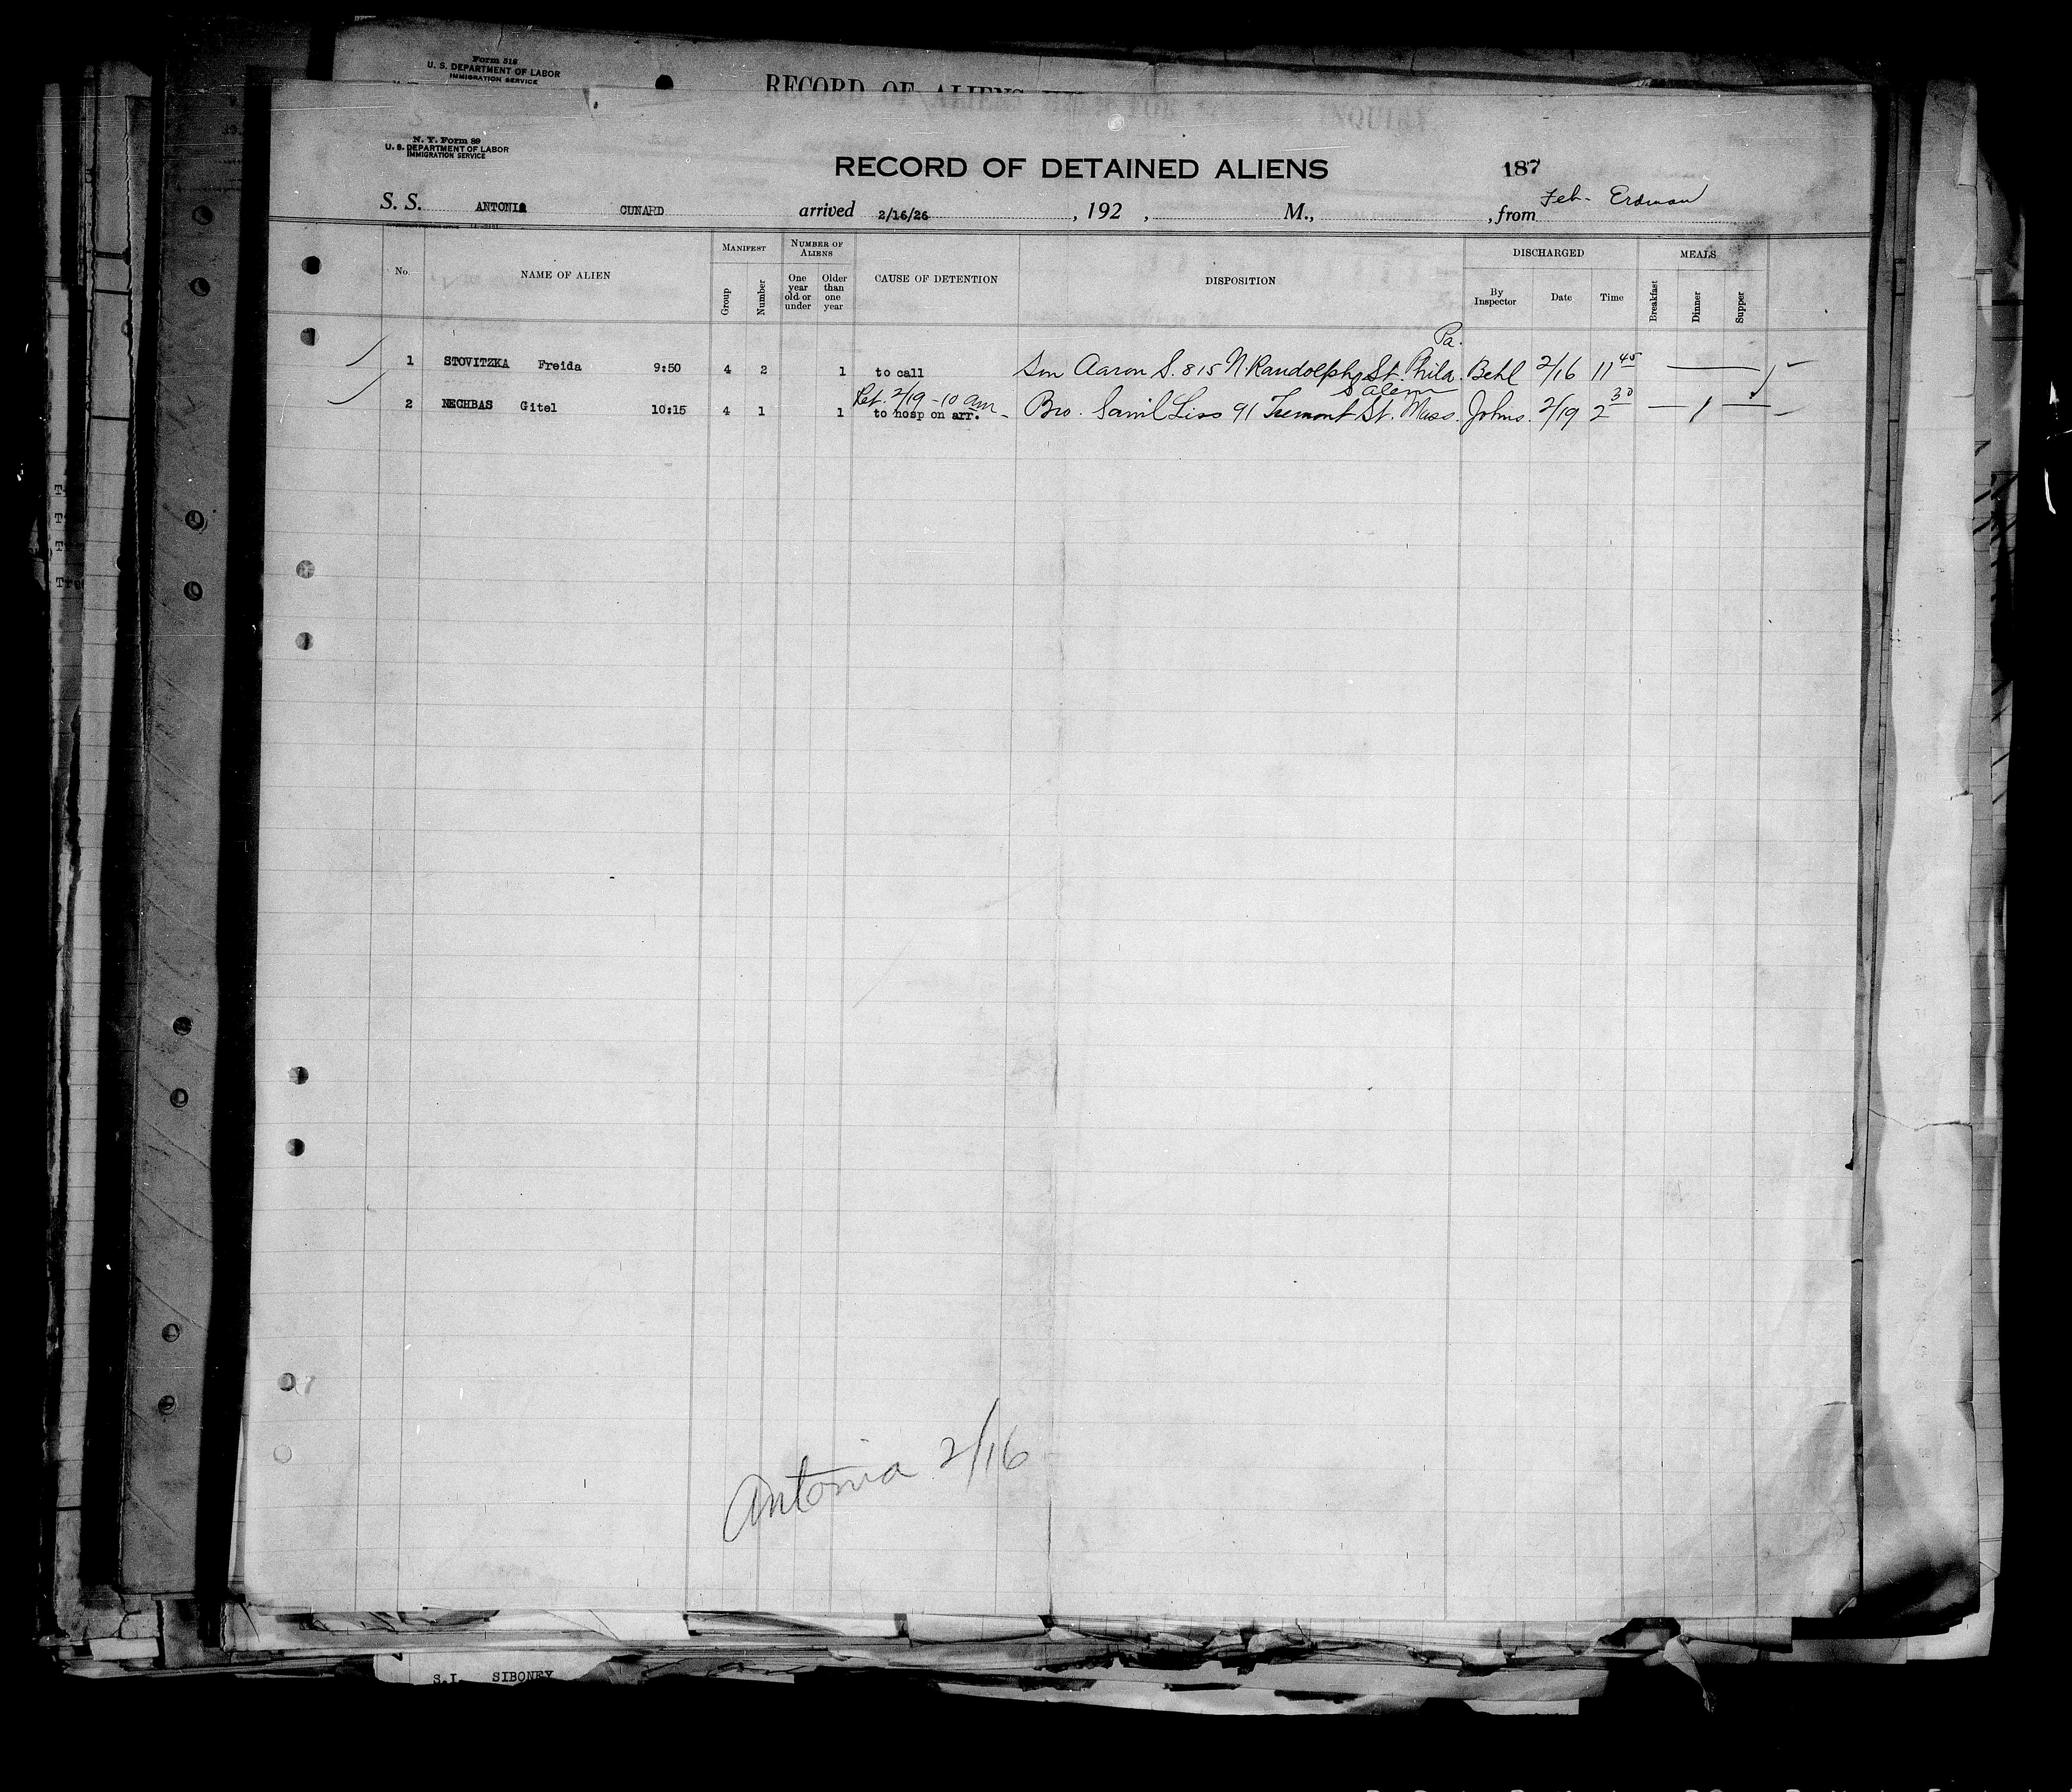 Form 518
U. S. DEPARTMENT OF LABOR
IMMIGRATION SERVICE
RECORD OF ALIENS HELD FOR INQUIRY
N. Y. Form 89
U. S. DEPARTMENT OF LABOR
IMMIGRATION SERVICE
RECORD OF DETAINED ALIENS 187
S. S. ANTONIA CUNARD arrived 2/16/26 , 192 , M., , from Feh- Erdman
No. NAME OF ALIEN MANIFEST Group Number NUMBER OF ALIENS One year old or under Older than one year CAUSE OF DETENTION DISPOSITION DISCHARGED By Inspector Date Time MEALS Breakfast Dinner Supper
Pa.
1 STOVITZKA Freida 9:50 4 2 1 to call Son Aaron S. 815 N. Randolph St. Phila. Behl 2/16 11 45
Ret. 2/19 - 10 am - Salem
2 NECHBAS Gitel 10:15 4 1 1 to hosp on arr. Bro. Saml Liss 91 Tremont St. Mass. Johns. 2/19 2 30 — 1 —
Antonia 2/16
S.I. SIBONEY